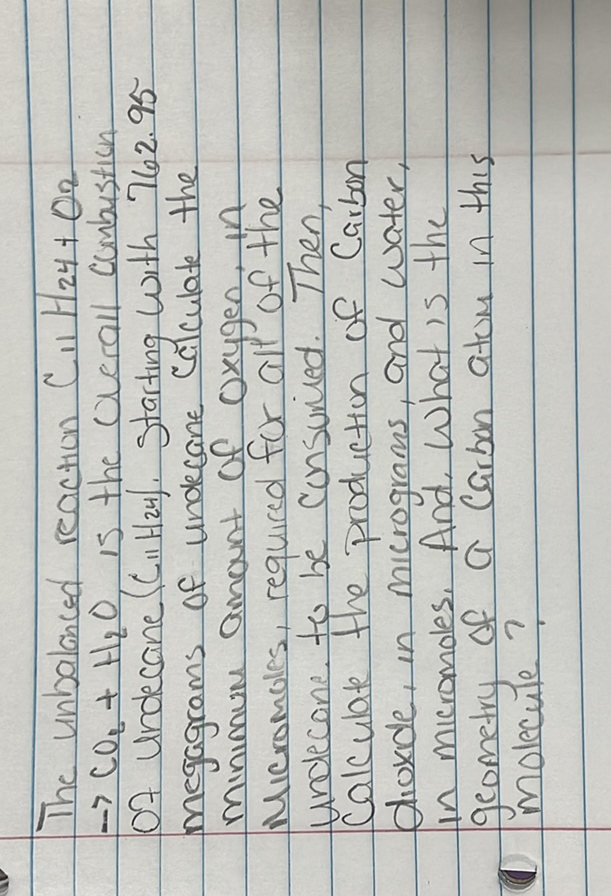 The unbalanced reaction C11 H24 + O2
→ CO2 + H2O is the overall combustion
of undecane (C11 H24). Starting with 762.95
megagrams of undecane calculate the
minimum amount of oxygen, in
Micromoles, required for all of the
undecane to be consumed. Then,
Calculate the production of Carbon
dioxide, in micrograms, and water,
in micromoles. And, what is the
geometry of a Carbon atom in this
molecule?